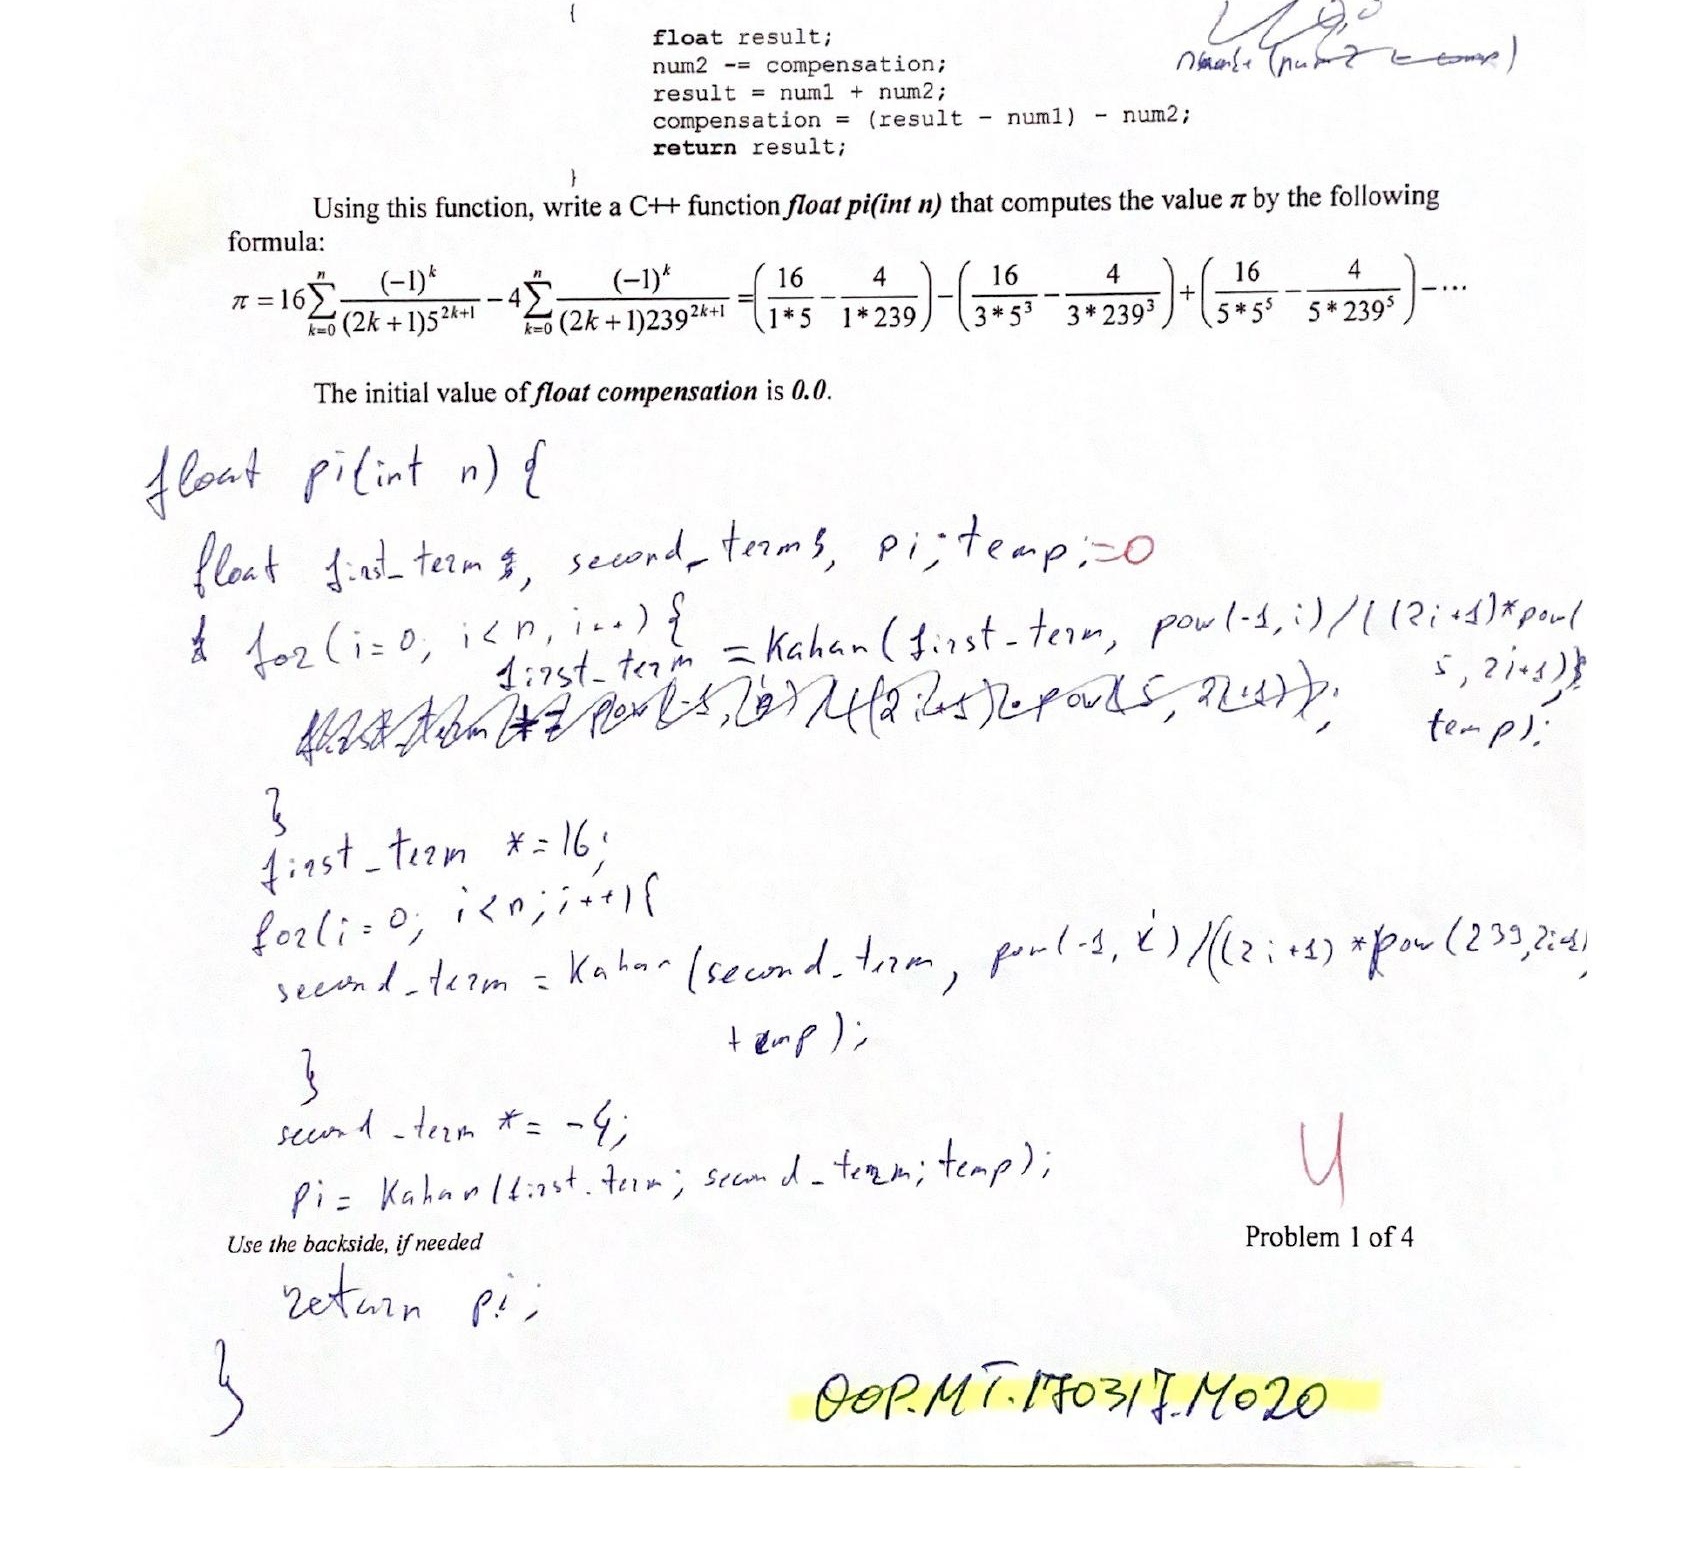 {
float result;
num2 -= compensation;
result = num1 + num2;
compensation = (result - num1) - num2;
return result;
}
Using this function, write a C++ function float pi(int n) that computes the value π by the following
formula:
π = 16 ∑_{k=0}^{n} (-1)^k / ((2k+1)5^{2k+1}) - 4 ∑_{k=0}^{n} (-1)^k / ((2k+1)239^{2k+1}) = (16/(1*5) - 4/(1*239)) - (16/(3*5^3) - 4/(3*239^3)) + (16/(5*5^5) - 4/(5*239^5)) - ...
The initial value of float compensation is 0.0.
float pi(int n) {
float first_term, second_term, pi; temp; =0
for (i=0; i<n, i++) {
first_term = Kahan (first-term, pow(-1,i)/((2i+1)*pow(
5, 2i+1))
temp);
}
first_term *= 16;
for(i=0; i<n; i++) {
second_term = Kahan (second_term, pow(-1, i)/((2i+1) *pow(239,2i+1)
temp);
}
second_term *= -4;
pi = Kahan(first_term; second_term; temp);
4
Use the backside, if needed
Problem 1 of 4
return pi;
}
OOP.MT.170317.M020